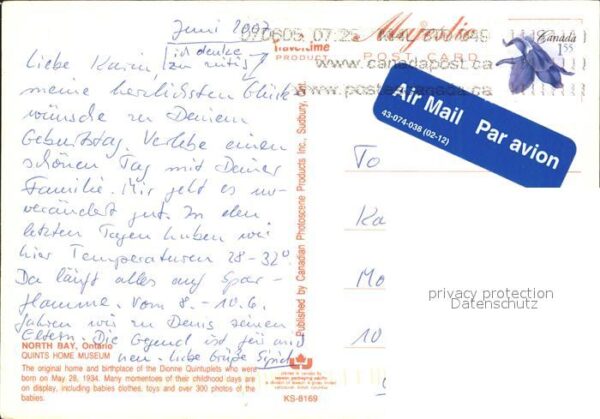 Juni 2007
070605 07:25
Liebe Karin,
ich denke
meine herzlichsten Glück
wünsche zu Deinem
Geburtstag. Verlebe einen
schönen Tag mit Deiner
Familie. Mir geht es un-
verändert gut. In den
letzten Tagen haben wir
hier Temperaturen 28-32°.
Da läuft alles auf Spar-
flamme. Vom 8.-10.6.
fahren wir zu Denis seinen
Eltern. Die Gegend ist für mich
neu. Liebe Grüße
NORTH BAY, Ontario
QUINTS HOME MUSEUM
The original home and birthplace of the Dionne Quintuplets who were
born on May 28, 1934. Many momentoes of their childhood days are
on display, including babies clothes, toys and over 300 photos of the
babies.
Traveltime
PRODUCT
Majestic
POST CARD
www.canadapost.ca
www.postescanada.ca
Canada
1.55
Air Mail Par avion
43-074-036 (02-12)
Published by Canadian Photoscene Products Inc., Sudbury, Ont.
To
Ka
Mo
10
privacy protection
Datenschutz
KS-8169